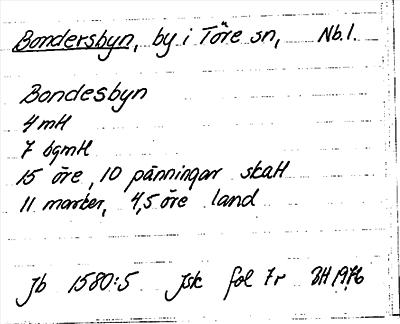 Bondersbyn, by i Töre sn, Nb.l.
Bondesbyn
4 mtl
7 bgmtl
15 öre, 10 pänningar skatt
11 marker, 4,5 öre land
Jb 1580:5 Jsk fol 7r BH 1976